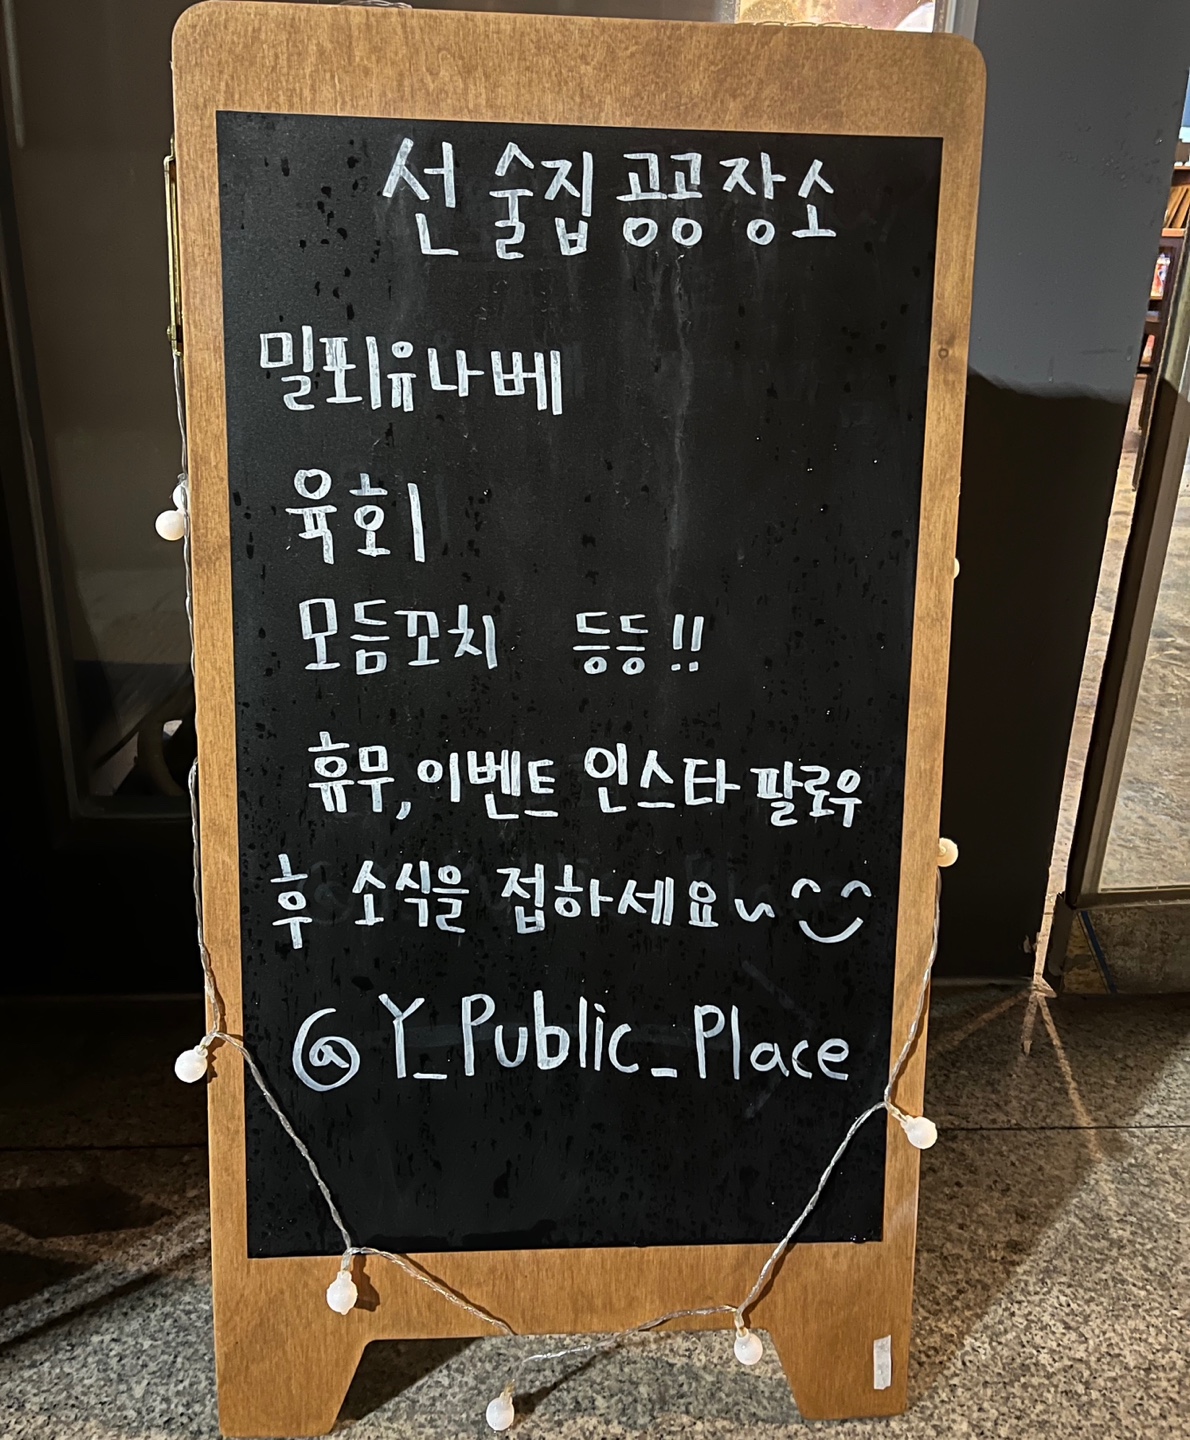 선 술집 공공장소
밀푀유나베
육회
모듬꼬치 등등!!
휴무, 이벤트 인스타 팔로우
후 소식을 접하세요~
@Y_Public_Place